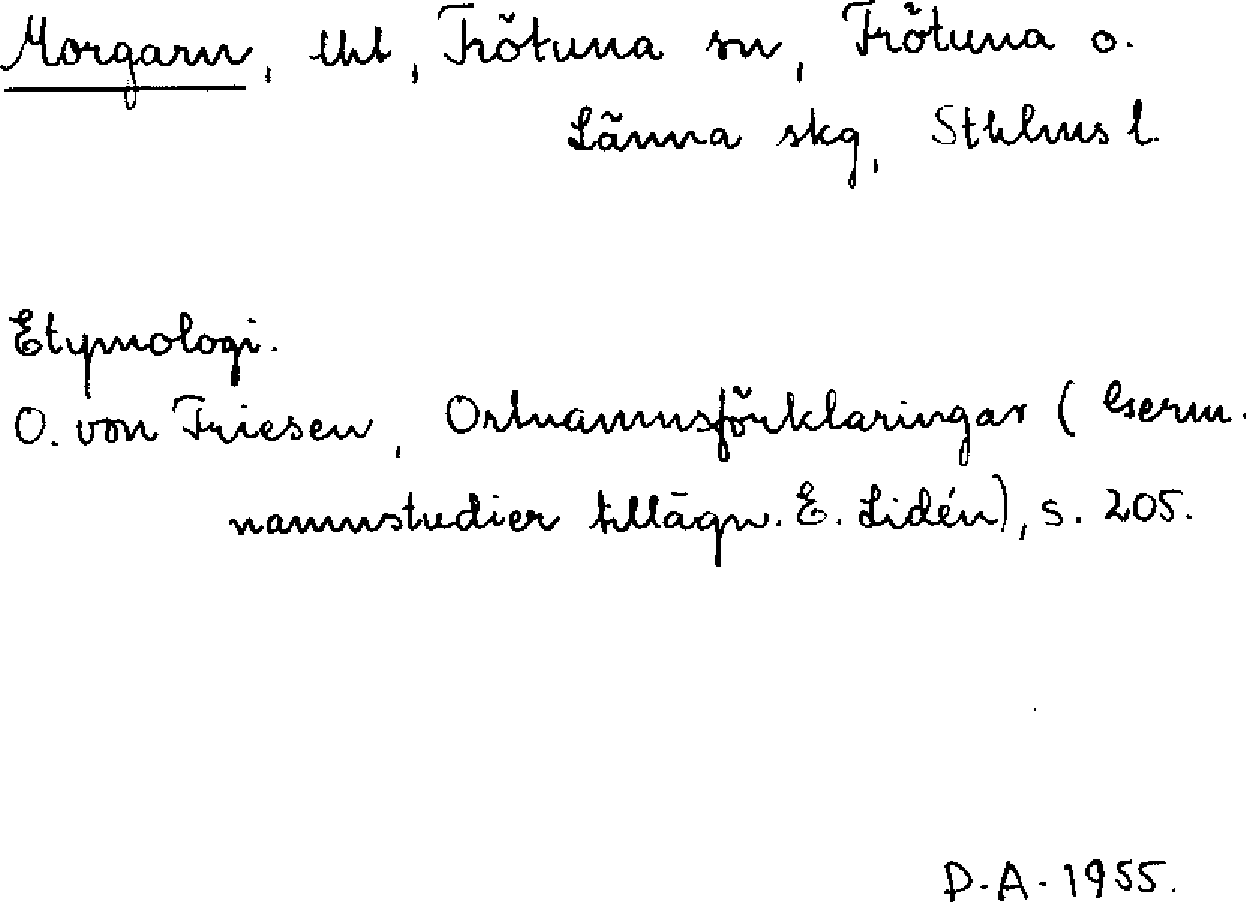 Morgarn, Ukl, Frötuna sn, Frötuna o.
Länna skg, Sthlms l.
Etymologi.
O. von Friesen, Ortnamnsförklaringar (Germ.
namnstudier tillägn. E. Lidén), s. 205.
D.A. 1955.